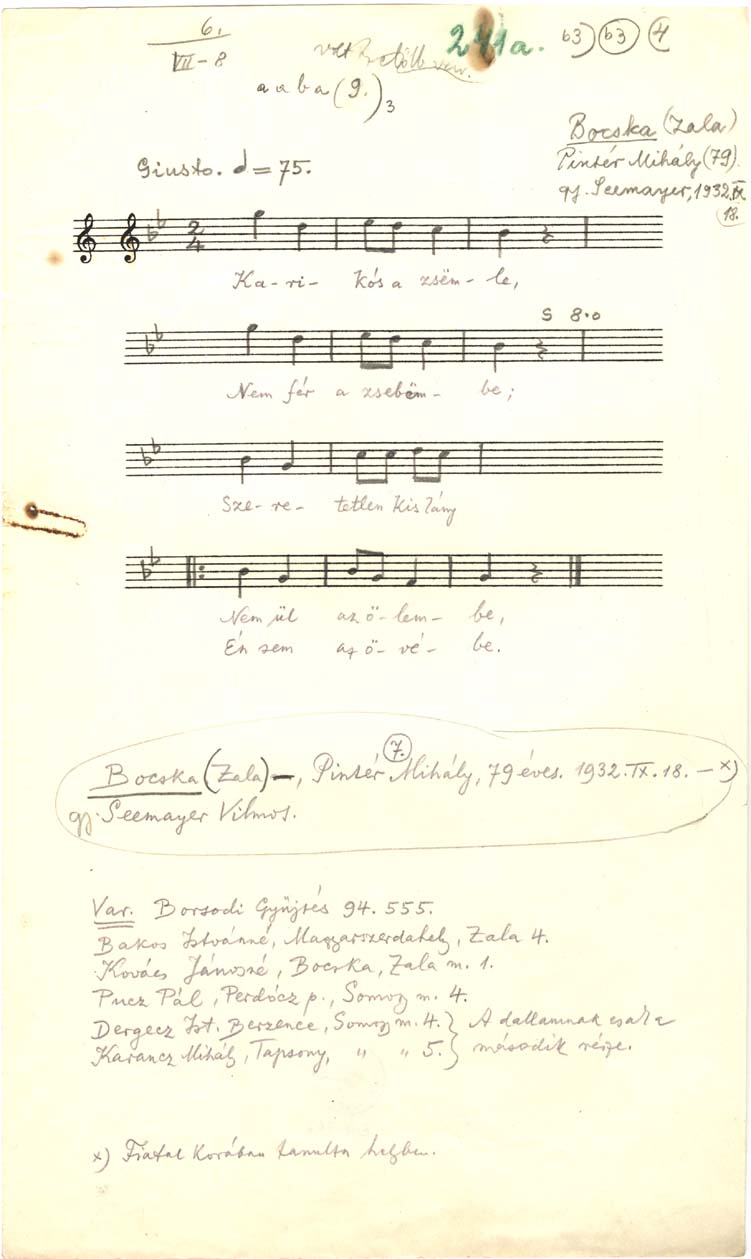 6.
VII-8
volt
241a.
b3) b3) 4
a a b a (9.)3
Bocska (Zala)
Pintér Mihály (79)
gy. Seemayer, 1932.IX
18.
Giusto. = 75.
2
4
Ka-ri- kós a zsëm- le,
S 8.0
Nem fér a zsebëm- be;
Sze-re- tetlen kislány
Nem ül az ö-lem- be,
Én sem az ö-vé- be.
7.
Bocska (Zala)—, Pintér Mihály, 79 éves. 1932.IX.18. — x)
gy. Seemayer Vilmos.
Var. Borsodi Gyűjtés 94. 555.
Bakos Istvánné, Magyarszerdahely, Zala 4.
Kovács Jánosné, Bocska, Zala m. 1.
Pucz Pál, Perdócz p., Somogy m. 4.
Dergecz Ist. Berzence, Somogy m. 4. } A dallamnak csak a
Karancz Mihály, Tapsony, " " 5. } második része.
x) Fiatal korában tanulta helyben.